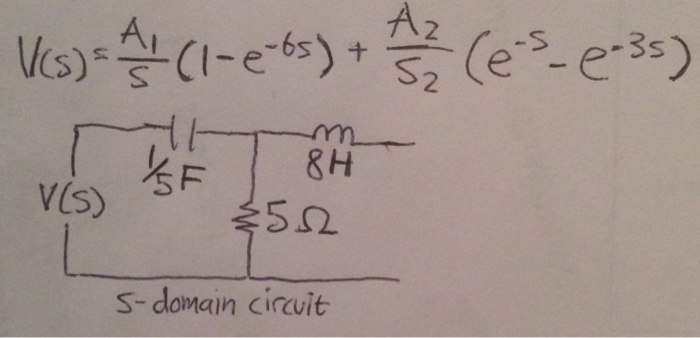 V(s) = A₁/s (1-e^-6s) + A₂/s₂ (e^-s - e^-3s)
1/5F
8H
V(s)
5Ω
S-domain circuit